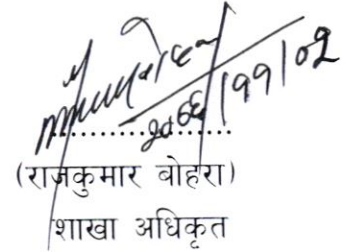 २०६६/११/०२
..................
(राजकुमार बोहरा)
शाखा अधिकृत